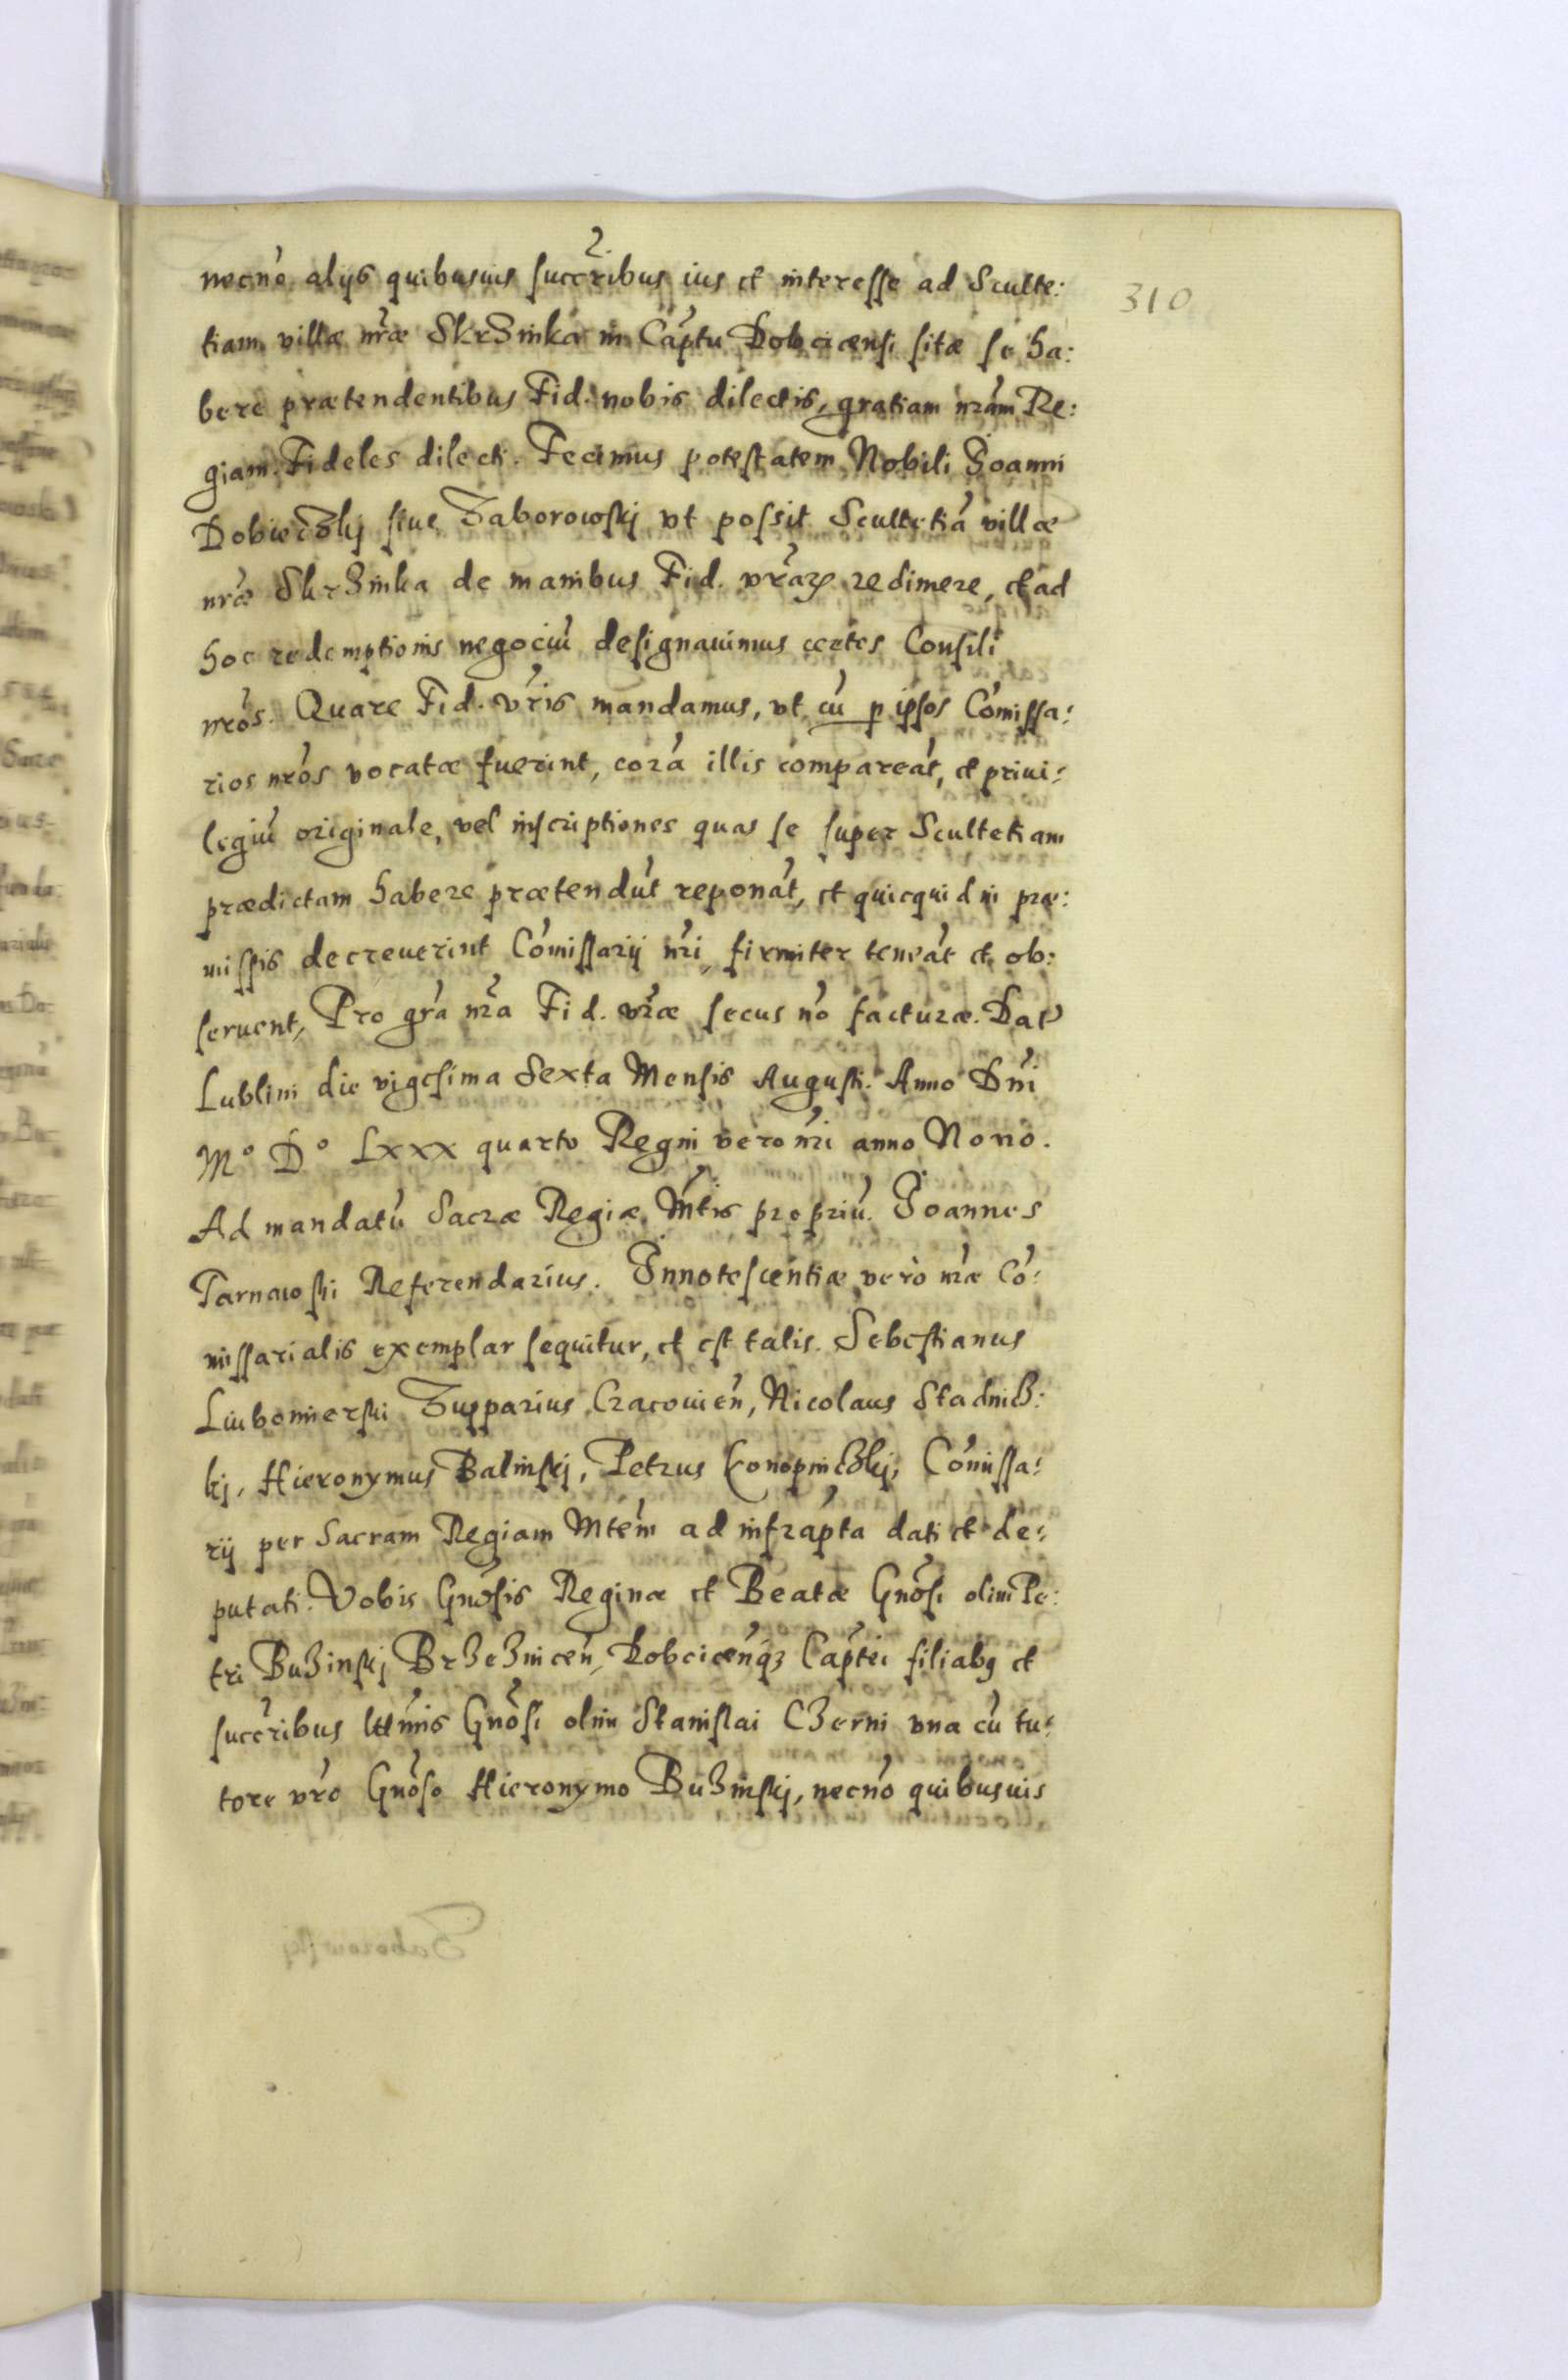 310
necnō alijs quibusuis succribus ius et interesse ad Sculte:
tiam villæ nr̃æ Skrzinka in Captu Dobcicensi sitæ se ha:
bere prætendentibus Fid. nobis dilectis, gratiam nrãm Re:
giam. Fideles dilecti. Fecimus potestatem Nobili Joanni
Dobieczkij siue Zaborowskij vt possit Scultetiã villæ
nræ Skrzinka de manibus Fid. vrãrꝫ redimere, et ad
hoc redemptionis negociũ designauimus certos Consili
nrõs. Quare Fid. vr̃is mandamus, vt cũ p ipsos Cõmissa:
rios nrõs vocatæ fuerint, corã illis compareãt, et priui:
legiũ originale, vel inscriptiones quas se super Scultetiam
prædictam habere prætendũt reponãt, et quicquid in præ:
missis decreuerint Cõmissarij nr̃i, firmiter teneãt et ob:
seruent, Pro grã nr̃a Fid. vr̃æ secus nõ facturæ. Dat
Lublini die vigesima Sexta Mensis Augusti. Anno Dñi
Mº Dº Lxxx quarto Regni vero nr̃i anno Nono.
Ad mandatũ Sacræ Regiæ Mtis propriũ. Joannes
Tarnowski Referendarius. Innotescentiæ verò nr̃æ Cõ:
missarialis exemplar sequitur, et est talis. Sebestianus
Liubomierski Zupparius Cracouieñ, Nicolaus Stadnicz:
kij, Hieronymus Balinskij, Petrus Konopniczkij, Cõmissa:
rij per Sacram Regiam Mtem ad infrapta dati et de:
putati. Vobis Gnõsis Reginæ et Beatæ Gnõsi olim Pe:
tri Buzinskij Brzezniceñ, Dobciceñqꝫ Captei filiabꝰ et
succribus Gnõsi olim Stanislai Czerni vna cũ tu:
tore vrõ Gnõso Hieronymo Buzinskij, necnõ quibusuis